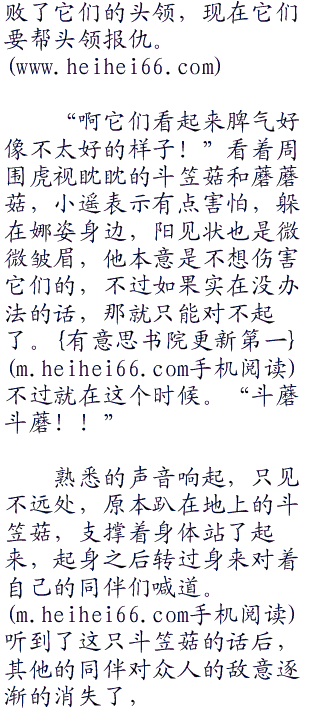 败了它们的头领，现在它们
要帮头领报仇。
(www.heihei66.com)
“啊它们看起来脾气好
像不太好的样子！”看着周
围虎视眈眈的斗笠菇和蘑蘑
菇，小遥表示有点害怕，躲
在娜姿身边，阳见状也是微
微皱眉，他本意是不想伤害
它们的，不过如果实在没办
法的话，那就只能对不起
了。{有意思书院更新第一}
(m.heihei66.com手机阅读)
不过就在这个时候。“斗蘑
斗蘑！！”
熟悉的声音响起，只见
不远处，原本趴在地上的斗
笠菇，支撑着身体站了起
来，起身之后转过身来对着
自己的同伴们喊道。
(m.heihei66.com手机阅读)
听到了这只斗笠菇的话后，
其他的同伴对众人的敌意逐
渐的消失了，